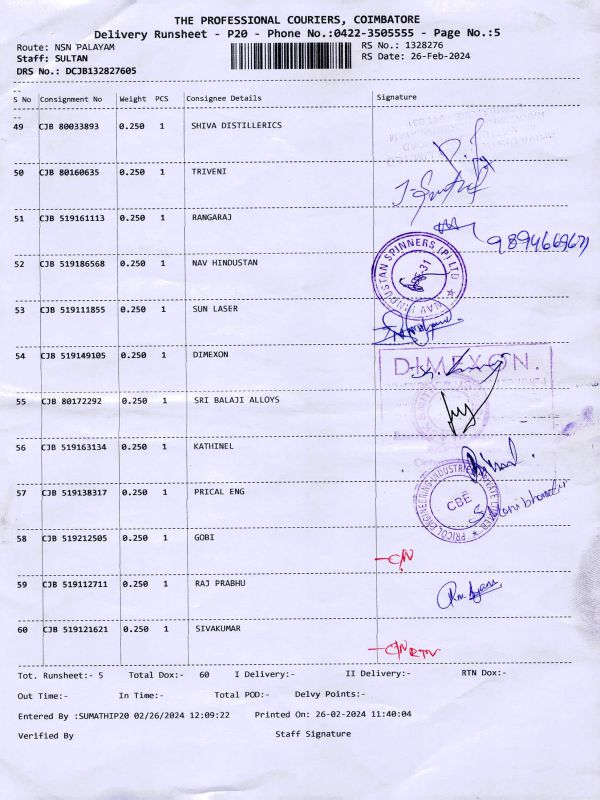 THE PROFESSIONAL COURIERS, COIMBATORE
Delivery Runsheet - P20 - Phone No.:0422-3505555 - Page No.:5
Route: NSN PALAYAM RS No.: 1328276
Staff: SULTAN RS Date: 26-Feb-2024
DRS No.: DCJB132827605
S No Consignment No Weight PCS Consignee Details Signature
49 CJB 80033893 0.250 1 SHIVA DISTILLERICS
50 CJB 80160635 0.250 1 TRIVENI
51 CJB 519161113 0.250 1 RANGARAJ
52 CJB 519186568 0.250 1 NAV HINDUSTAN
NAV HINDUSTAN SPINNERS (P) LTD
53 CJB 519111855 0.250 1 SUN LASER
54 CJB 519149105 0.250 1 DIMEXON
DIMEXON.
55 CJB 80172292 0.250 1 SRI BALAJI ALLOYS
56 CJB 519163134 0.250 1 KATHINEL
57 CJB 519138317 0.250 1 PRICAL ENG
PRICOL ENGINEERING INDUSTRIES PRIVATE LIMITED
CBE
58 CJB 519212505 0.250 1 GOBI
CN
59 CJB 519112711 0.250 1 RAJ PRABHU
60 CJB 519121621 0.250 1 SIVAKUMAR
CN RTN
Tot. Runsheet:- 5 Total Dox:- 60 I Delivery:- II Delivery:- RTN Dox:-
Out Time:- In Time:- Total POD:- Delvy Points:-
Entered By :SUMATHIP20 02/26/2024 12:09:22 Printed On: 26-02-2024 11:40:04
Verified By Staff Signature